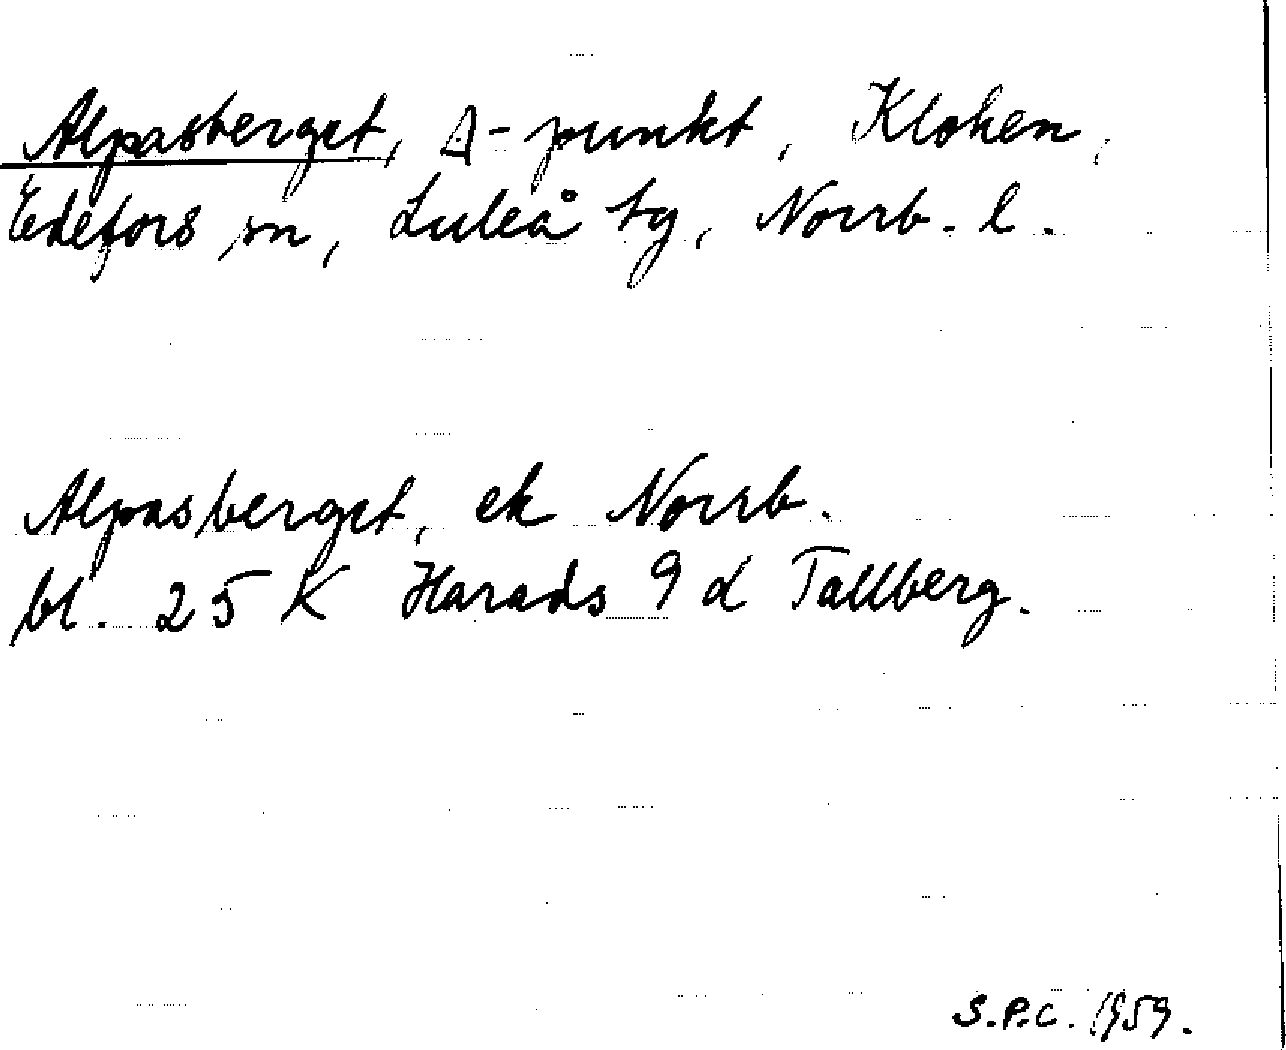 Alpasberget, Δ-punkt, Klohen,
Edefors sn, Luleå tg, Norrb. l.
Alpasberget, ek Norrb.
bl. 25 K Harads 9 d Tallberg.
S.P.C. 1959.